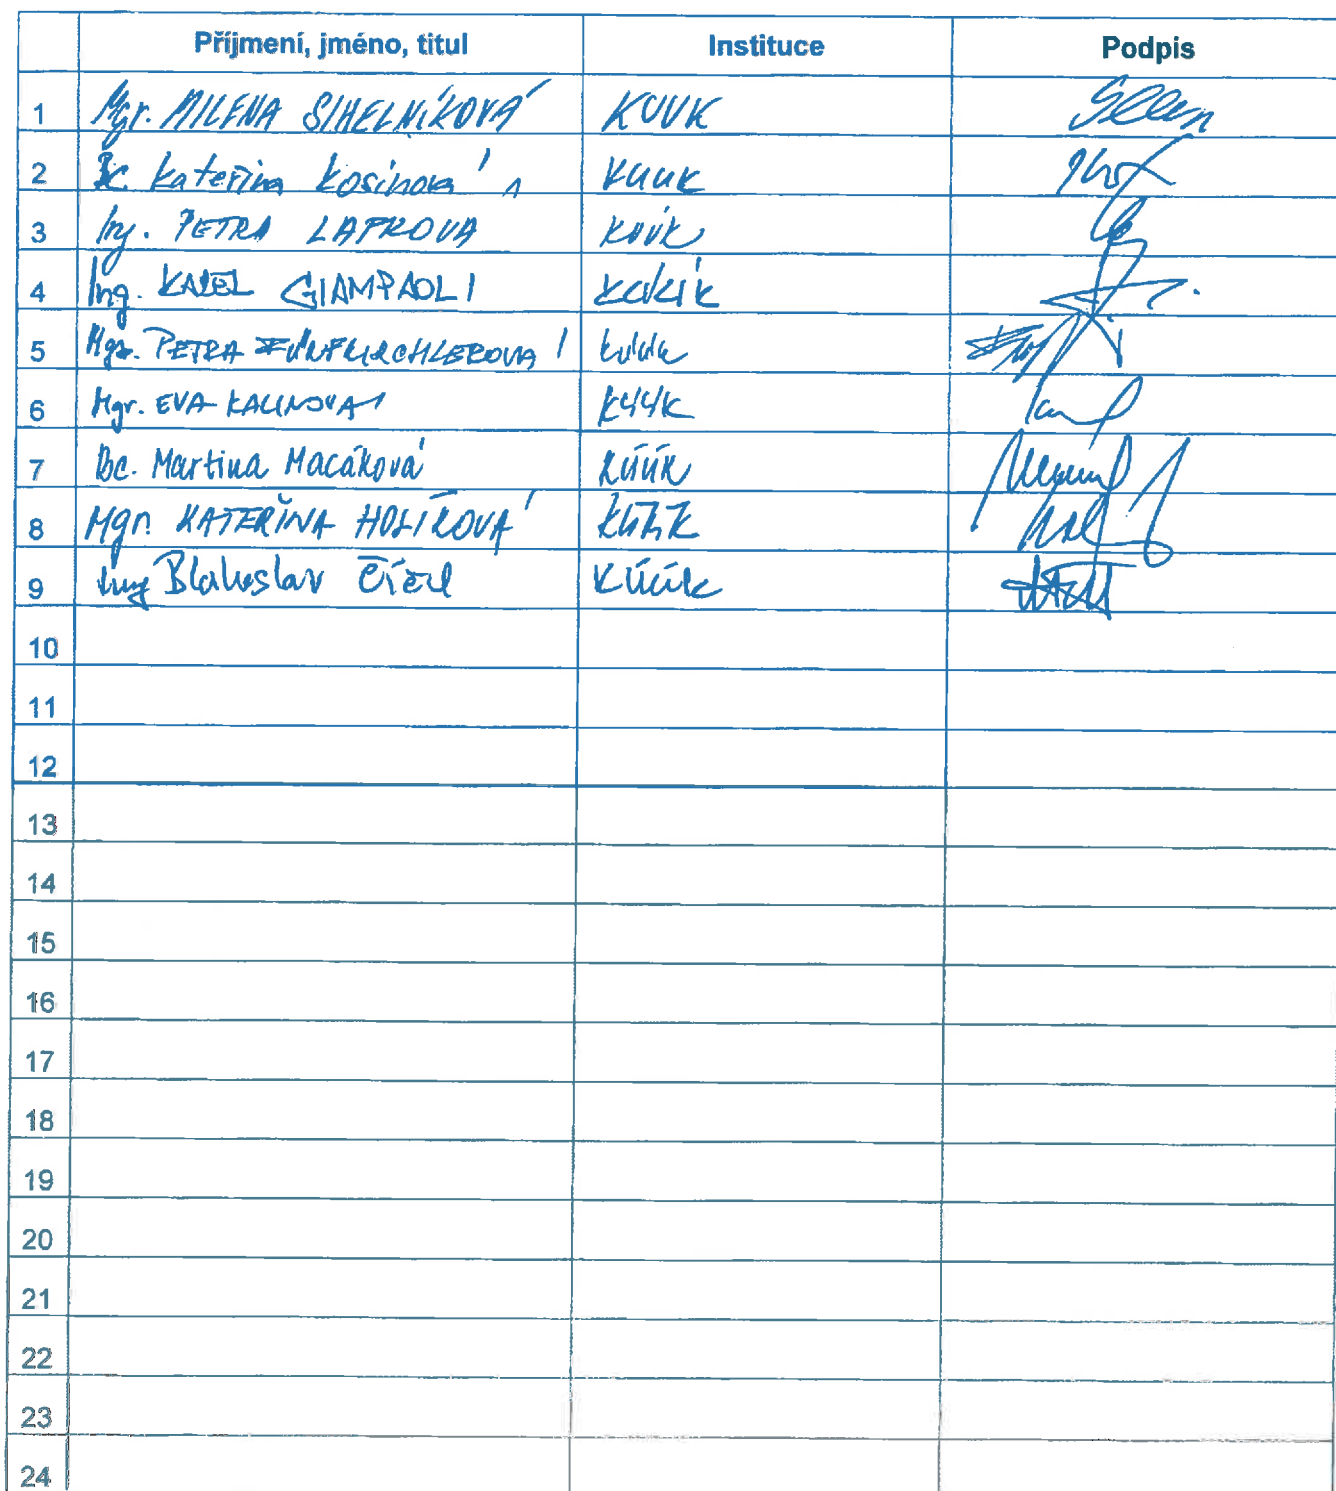 Příjmení, jméno, titul Instituce Podpis
1 Mgr. MILENA SIHELNÍKOVÁ KUUK
2 Bc. Kateřina Kosinová KUUK
3 Ing. PETRA LAFKOVA KUÚK
4 Ing. KAREL GIAMPAOLI
5 Mgr. PETRA FÜNFKIRCHLEROVÁ
6 Mgr. EVA KALINOVÁ KÚÚK
7 Bc. Martina Macáková KÚÚK
8 Mgr. KATEŘINA HOLÍKOVÁ
9 Ing Blahoslav KÚÚK
10
11
12
13
14
15
16
17
18
19
20
21
22
23
24